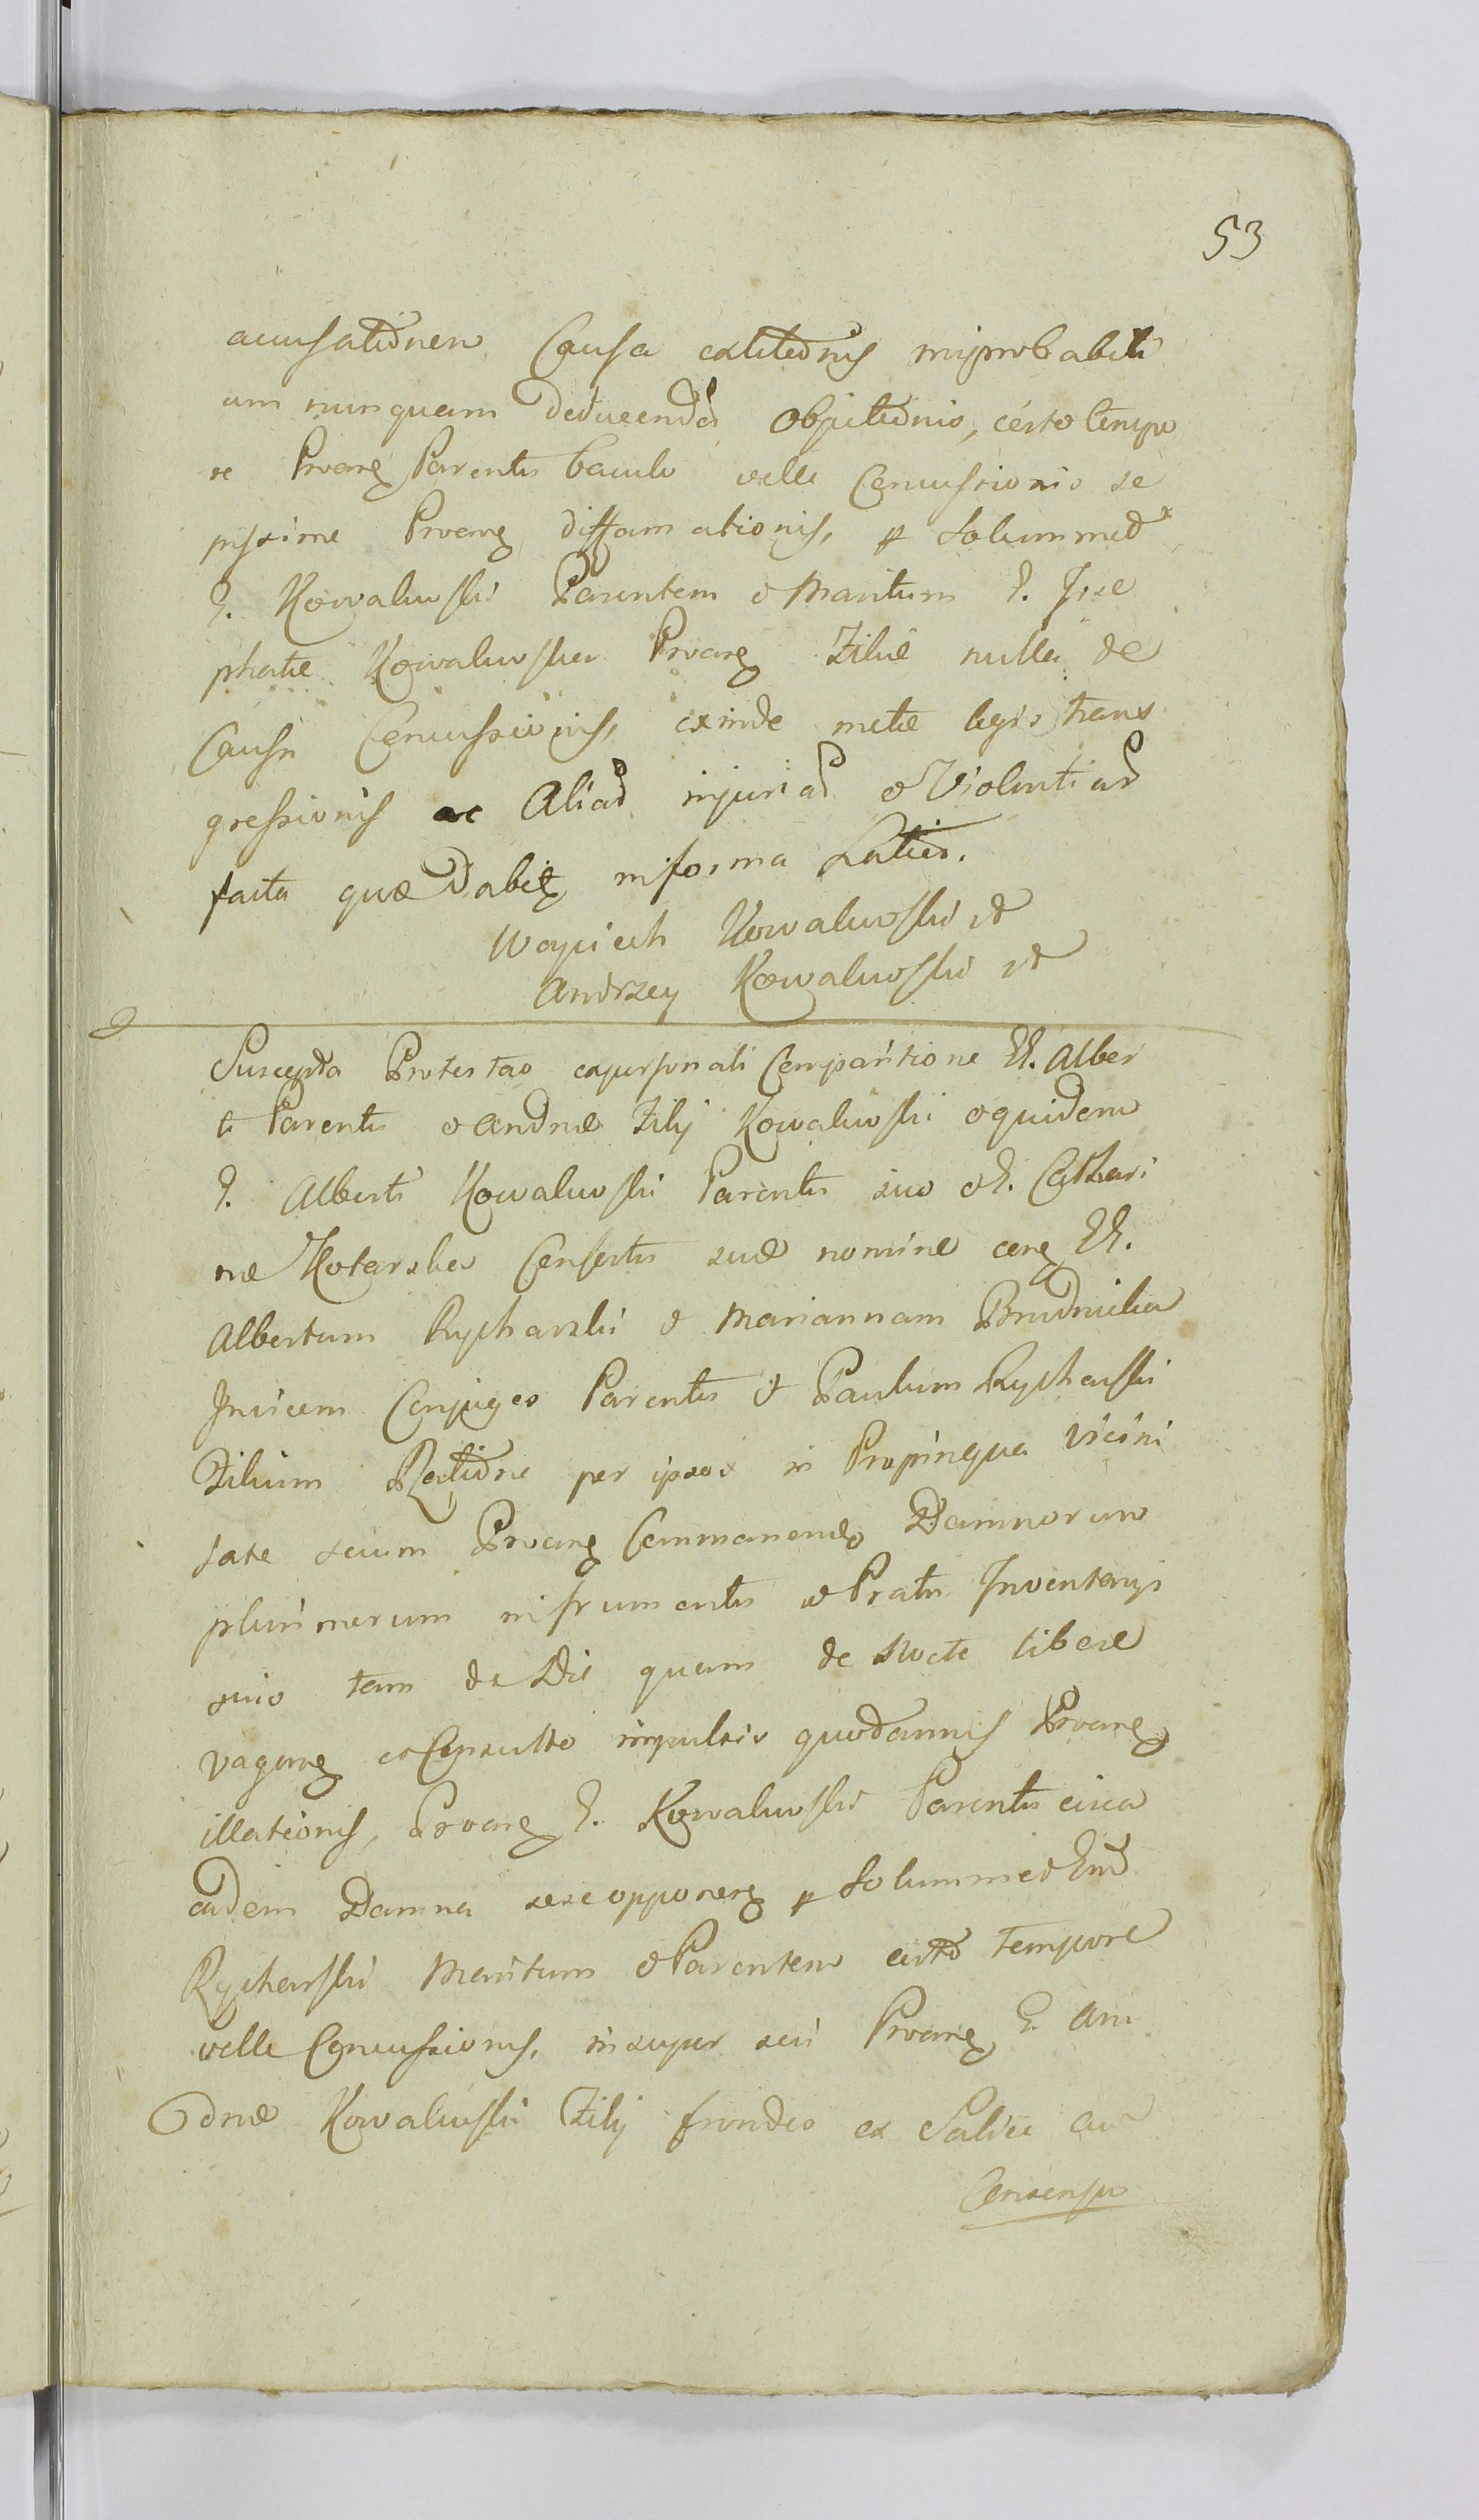 53
accusationem Causa extitionis improbabili
um nunquam deducendar Objectionis, certo tempo
re Prvarg Parentis baculo velle Concussionis se
pissime Prvarg diffamationis, p solummod
G. Kowalewski Parentem & Maritum G. Joze
phatæ Kowalewska Prvarg Filiæ nulla de
Causa Concussionis, exinde metæ legis trans
gressionis ac Aliar injuriar & Violentiar
facta quæ dabitg in forma Latior.
Woyciech Kowalewski
Andrzey Kowalewski
Suscepta Protestao ex personali Comparitione GG. Alber
ti Parentis & Andreæ Filij Kowalewski & quidem
G. Alberti Kowalewski Parentis suo & G. Cathari
næ Kotarska Consortis suæ nomine cerg GG.
Albertum Rycharski & Mariannam Brudnicka
Invicem Conjuges Parentes & Paulum Rycharski
Filium Ratione per ipsos in Propinqua Vicini
tate secum Prvarg Commanendo Damnorum
plurimorum in frumentis & Pratis Inventarys
suis tam de Die quam de Nocte libere
vagarg ex Consulto impulsis quodannis Prvarg
illationis, Prvarg G. Kowalewski Parentis circa
eadem Damna sese opponerg p solummod Gnd
Rycharski Maritum & Parentem certo tempore
velle Concussionis, insuper sui Prvarg G. An
dreæ Kowalewski Filij frondes ex Salice cum
Consensu